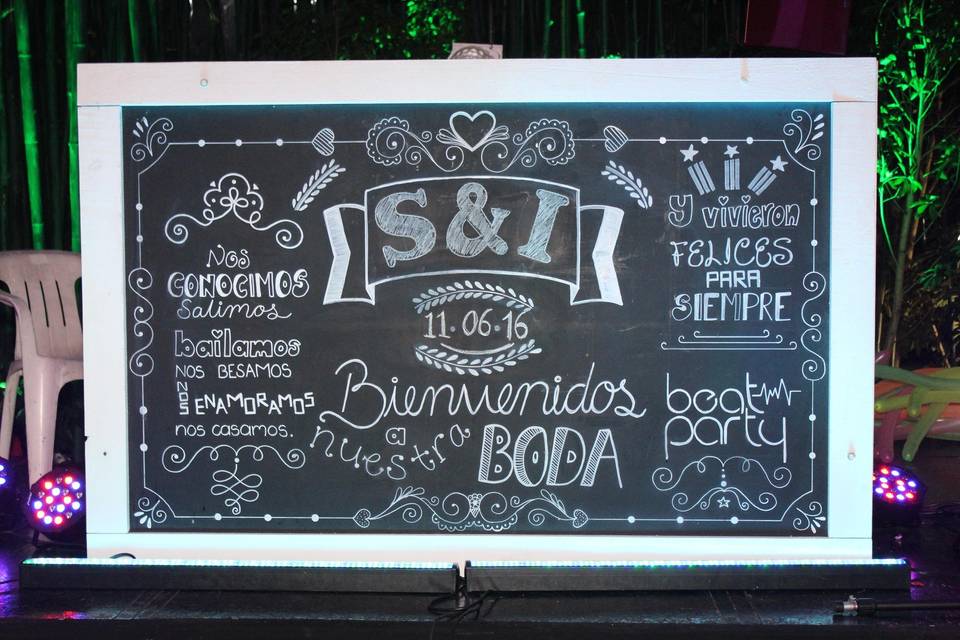 S&I
11·06·16
Bienvenidos
a
nuestra
BODA
Nos
CONOCIMOS
Salimos
bailamos
NOS BESAMOS
NOS ENAMORAMOS
nos casamos.
y vivieron
FELICES
PARA
SIEMPRE
beat
party